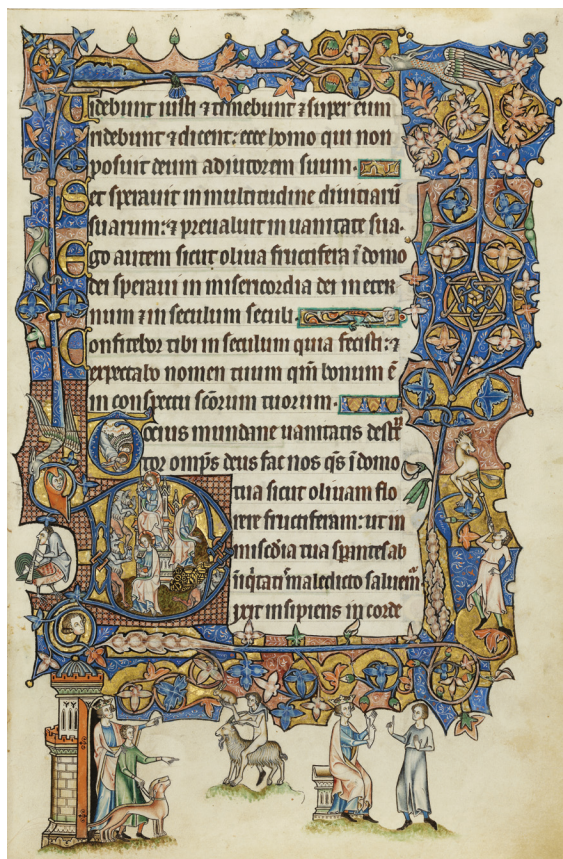 Uidebunt iusti ⁊ timebunt ⁊ super eum
ridebunt ⁊ dicent: ecce homo qui non
posuit deum adiutorem suum.
Set sperauit in multitudine diuitiarū
suarum: ⁊ preualuit in uanitate sua.
Ego autem sicut oliua fructifera ī domo
dei speraui in misericordia dei in eter
num ⁊ in seculum seculi.
Confitebor tibi in seculum quia fecisti: ⁊
expectabo nomen tuum qm̄ bonum ē
in conspectu sc̄orum tuorum.
Oceius mundane uanitatis destr̄
tor omp̄s deus fac nos q̄s ī domo
tua sicut oliuam flo
rere fructiferam: ut in
mis̄c̄dia tua sp̄antes ab
maledicto saluem̄
Dixit insipiens in corde